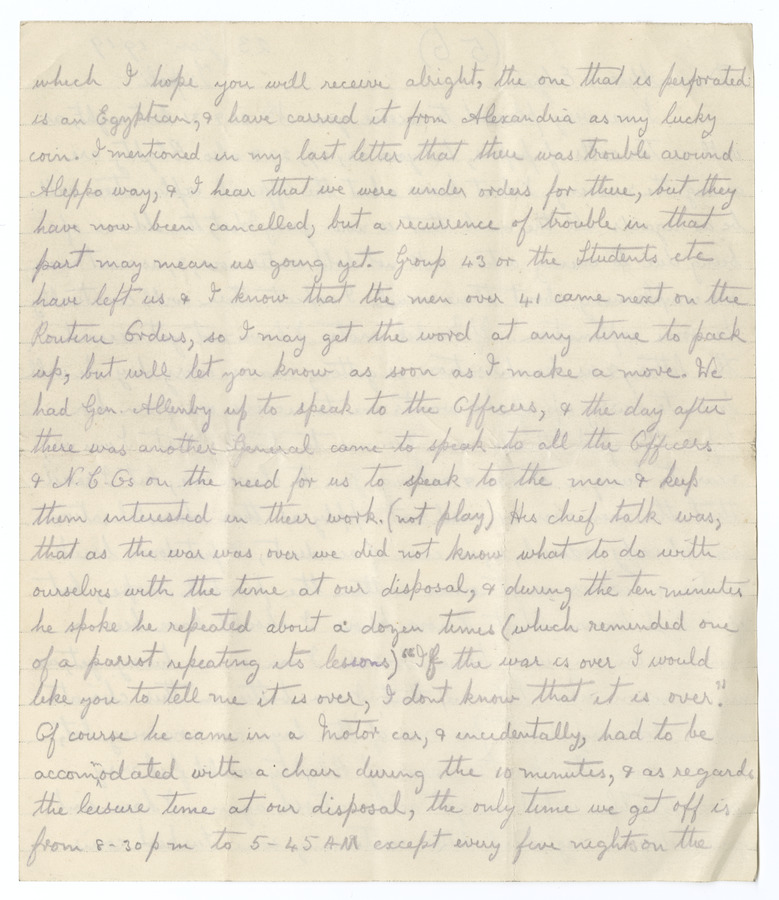 which I hope you will receive alright, the one that is perforated
is an Egyptian, & have carried it from Alexandria as my lucky
coin. I mentioned in my last letter that there was trouble around
Aleppo way, & I hear that we were under orders for there, but they
have now been cancelled, but a recurrence of trouble in that
part may mean us going yet. Group 43 or the Students etc
have left us & I know that the men over 41 came next on the
Routine Orders, so I may get the word at any time to pack
up, but will let you know as soon as I make a move. We
had Gen. Allenby up to speak to the Officers, & the day after
there was another General came to speak to all the Officers
& N.C.Os on the need for us to speak to the men & keep
them interested in their work. (not play) His chief talk was,
that as the war was over we did not know what to do with
ourselves with the time at our disposal, & during the ten minutes
he spoke he repeated about a dozen times (which reminded one
of a parrot repeating its lessons) "If the war is over I would
like you to tell me it is over, I dont know that it is over."
Of course he came in a Motor car, & incidentally, had to be
accommodated with a chair during the 10 minutes, & as regards
the leisure time at our disposal, the only time we get off is
from 8-30 pm to 5-45 AM except every five nights on the